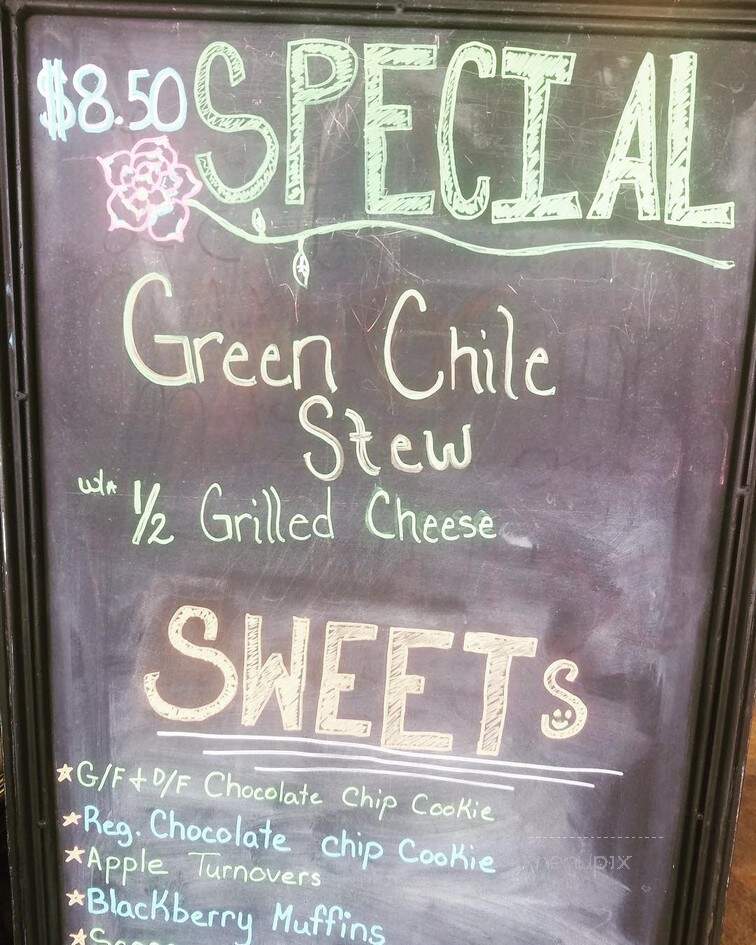 $8.50 SPECIAL
Green Chile
Stew
w/a 1/2 Grilled Cheese
SWEETs
G/F + D/F Chocolate Chip Cookie
Reg. Chocolate chip Cookie
Apple Turnovers
Blackberry Muffins